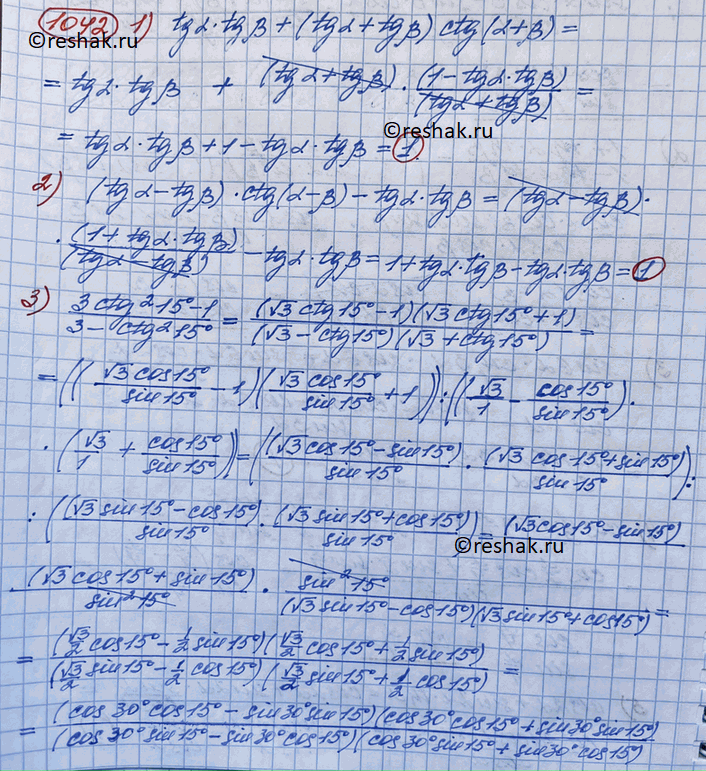 1042 1) tg α · tg β + (tg α + tg β) ctg (α + β) =
©reshak.ru
= tg α · tg β + (tg α + tg β) · (1 - tg α · tg β)/(tg α + tg β) =
©reshak.ru
= tg α · tg β + 1 - tg α · tg β = 1.
2) (tg α - tg β) · ctg (α - β) - tg α · tg β = (tg α - tg β) ·
· (1 + tg α · tg β)/(tg α - tg β) - tg α · tg β = 1 + tg α · tg β - tg α · tg β = 1
3) (3 ctg² 15° - 1)/(3 - ctg² 15°) = ((√3 ctg 15° - 1)(√3 ctg 15° + 1))/((√3 - ctg 15°)(√3 + ctg 15°)) =
= (((√3 cos 15°)/(sin 15°) - 1)((√3 cos 15°)/(sin 15°) + 1)) : ((√3/1 - (cos 15°)/(sin 15°)) ·
· (√3/1 + (cos 15°)/(sin 15°))) = ((√3 cos 15° - sin 15°)/(sin 15°) · (√3 cos 15° + sin 15°)/(sin 15°)) :
: ((√3 sin 15° - cos 15°)/(sin 15°) · (√3 sin 15° + cos 15°)/(sin 15°)) = (√3 cos 15° - sin 15°)
©reshak.ru
(√3 cos 15° + sin 15°)/(sin² 15°) · (sin² 15°)/((√3 sin 15° - cos 15°)(√3 sin 15° + cos 15°)) =
= ((√3/2 cos 15° - 1/2 sin 15°)(√3/2 cos 15° + 1/2 sin 15°))/((√3/2 sin 15° - 1/2 cos 15°)(√3/2 sin 15° + 1/2 cos 15°)) =
= ((cos 30° cos 15° - sin 30° sin 15°)(cos 30° cos 15° + sin 30° sin 15°))/((cos 30° sin 15° - sin 30° cos 15°)(cos 30° sin 15° + sin 30° cos 15°))